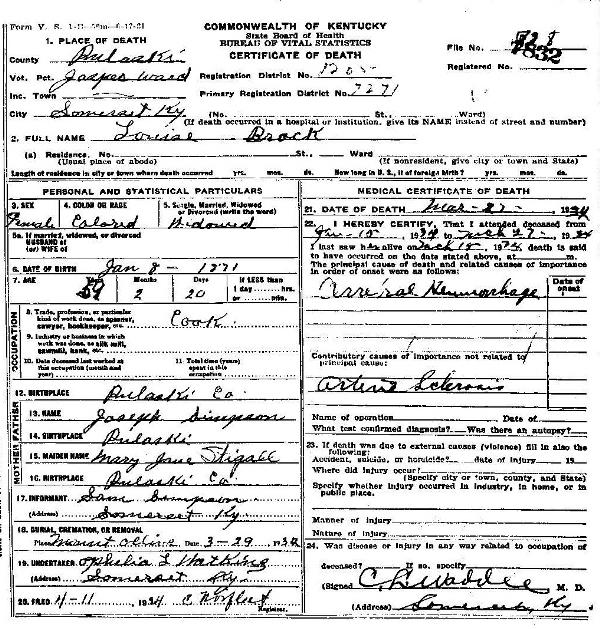 Form V. S. 1-D
COMMONWEALTH OF KENTUCKY
State Board of Health
BUREAU OF VITAL STATISTICS
CERTIFICATE OF DEATH
1. PLACE OF DEATH
County Pulaski
File No. 7832
Registered No.
Vot. Pct. Jasper Ward Registration District No. 1205
Inc. Town Primary Registration District No. 7271
City Somerset Ky (No. St., Ward)
(If death occurred in a hospital or institution, give its NAME instead of street and number)
2. FULL NAME Louise Brock
(a) Residence. No. St., Ward
(Usual place of abode) (If nonresident, give city or town and State)
Length of residence in city or town where death occurred yrs. mos. ds. How long in U. S., if of foreign birth? yrs. mos. ds.
PERSONAL AND STATISTICAL PARTICULARS
3. SEX Female
4. COLOR OR RACE Colored
5. Single, Married, Widowed or Divorced (write the word) Widowed
5a. If married, widowed, or divorced
HUSBAND of
(or) WIFE of
6. DATE OF BIRTH Jan 8 - 1871
7. AGE Months 2 Days 20 If LESS than
1 day hrs.
or min.
OCCUPATION
8. Trade, profession, or particular
kind of work done, as spinner,
sawyer, bookkeeper, etc. Cook
9. Industry or business in which
work was done, as silk mill,
sawmill, bank, etc.
10. Date deceased last worked at
this occupation (month and
year)
11. Total time (years)
spent in this
occupation
12. BIRTHPLACE Pulaski Co.
FATHER
13. NAME Joseph Simpson
14. BIRTHPLACE Pulaski
MOTHER
15. MAIDEN NAME Mary Jane Stigall
16. BIRTHPLACE Pulaski Co
17. INFORMANT Sam Simpson
(Address) Somerset Ky
18. BURIAL, CREMATION, OR REMOVAL
Place Date 3-29 1934
19. UNDERTAKER Ophelia L Watkins
(Address) Somerset Ky.
20. FILED 4-11 1934 C Norfleet
Registrar.
MEDICAL CERTIFICATE OF DEATH
21. DATE OF DEATH Mar-27- 1934
22. I HEREBY CERTIFY, That I attended deceased from
1934 to 27- 1934
I last saw her alive on 1934 death is said
to have occurred on the date stated above, at m.
The principal cause of death and related causes of importance
in order of onset were as follows:
Date of
onset
Hemmorhage
Contributory causes of importance not related to
principal cause:
Sclerosis
Name of operation Date of
What test confirmed diagnosis? Was there an autopsy?
23. If death was due to external causes (violence) fill in also the
following:
Accident, suicide, or homicide? date of injury 19
Where did injury occur?
(Specify city or town, county, and State)
Specify whether injury occurred in industry, in home, or in
public place.
Manner of injury
Nature of injury
24. Was disease or injury in any way related to occupation of
deceased? If so, specify
(Signed M. D.
(Address) Somerset, Ky